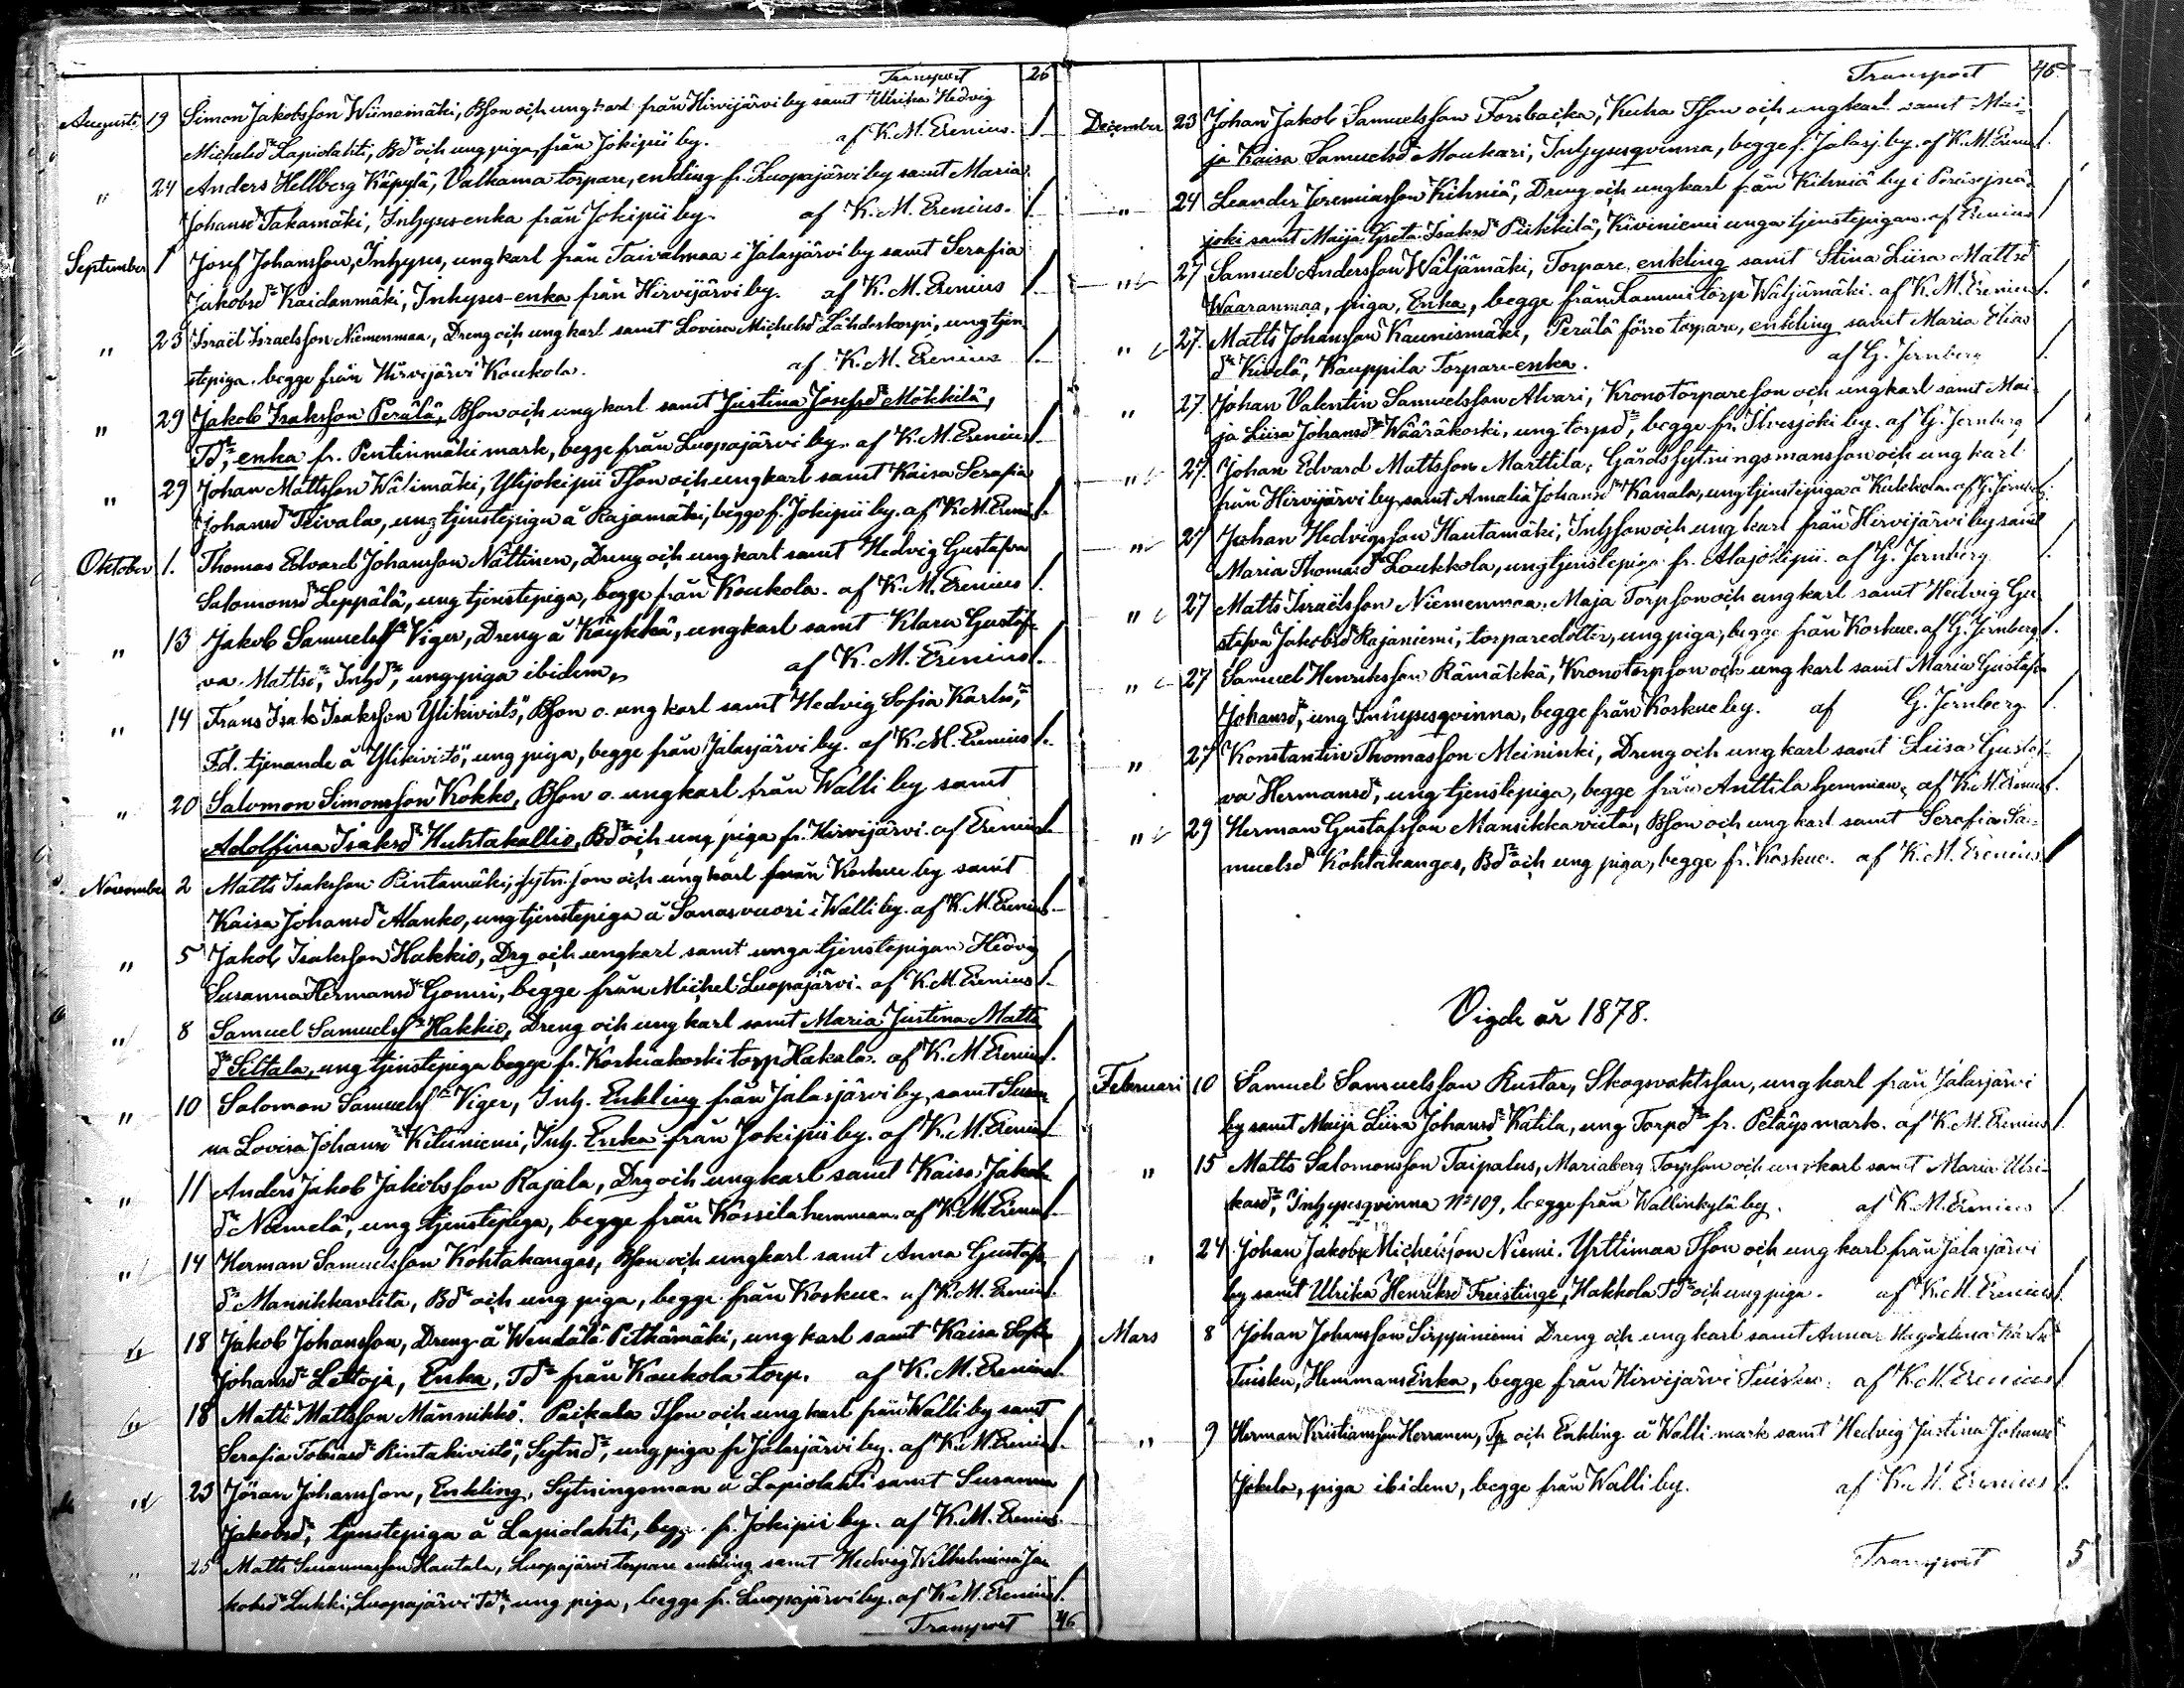 Transport 26
Augusti 19 Simon Jakobsson Wiinamäki, Bson och ungkarl från Hirvijärvi by samt Ulrika Hedvig
Michelsdr Lapiolahti, Bdr och ung piga, från Jokipii by. af K. M. Erenius. 1
" 24 Anders Hellberg Käpylä, Valkama torpare, enkling fr. Luopajärvi by samt Maria
Johansdr Takamäki, Inhyses-enka från Jokipii by. af K. M. Erenius. 1
September 1 Josef Johansson, Inhyses, ungkarl från Taivalmaa i Jalasjärvi by samt Serafia
Jakobsdr Kaidanmäki, Inhyses-enka från Hirvijärvi by. af K. M. Erenius 1
" 23 Israël Israelsson Niemenmaa, Dreng och ungkarl samt Lovisa Michelsdr Lähdeskorpi, ung tjen-
stepiga. begge från Hirvijärvi Koukola. af K. M. Erenius 1.
" 29 Jakob Isaksson Perälä, Bson och ungkarl samt Justina Josefsdr Mökkilä,
Tdr, enka fr. Pentinmäki mark, begge från Luopajärvi by. af K. M. Erenius 1.
" 29 Johan Mattsson Wälimäki, Ylijokipii Tson och ungkarl samt Kaisa Serafia
Johansdr Teivala, ung tjenstepiga å Rajamäki, begge f. Jokipii by. af K. M. Erenius 1.
Oktober 1. Thomas Edvard Johansson Nättinen, Dreng och ungkarl samt Hedvig Gustafva
Salomonsdr Leppälä, ung tjenstepiga, begge från Koukola. af K. M. Erenius 1.
" 13 Jakob Samuelsson Viger, Dreng å Köykkä, ungkarl samt Klara Gustaf-
va Mattsdr, Inhdr, ung piga ibidem, af K. M. Erenius 1.
" 14 Frans Isak Isaksson Ylikivistö, Bson o. ungkarl samt Hedvig Sofia Karlsdr,
Td. tjenande å Ylikivistö, ung piga, begge från Jalasjärvi by. af K. M. Erenius 1.
" 20 Salomon Simonsson Kokko, Bson o. ungkarl från Walli by samt
Adolfina Isaksdr Huhtakallio, Bdr och ung piga fr. Hirvijärvi. af Erenius 1
November 2 Matts Isaksson Rintamäki, sytn. son och ungkarl från Koskue by samt
Kaisa Johansdr Alanko, ung tjenstepiga å Sanasvuori i Walli by. af K. M. Erenius 1
" 5 Jakob Isaksson Hakkio, Drg och ungkarl samt unga tjenstepigan Hedvig
Susanna Hermansdr Gomsi, begge från Michel Luopajärvi. af K. M. Erenius 1
" 8 Samuel Samuelsson Hakkio, Dreng och ungkarl samt Maria Justina Matts-
dr Siltala, ung tjenstepiga begge fr. Koskiakoski torp Hakala. af K. M. Erenius 1.
" 10 Salomon Samuelsson Viger, Inh. Enkling från Jalasjärvi by, samt Susan-
na Lovisa Johansdr Kiliiniemi, Inh. Enka från Jokipii by. af K. M. Erenius 1
" 11 Anders Jakob Jakobsson Rajala, Drg och ungkarl samt Kaisa Jakobs-
dr Niemelä, ung tjenstepiga, begge från Kossila hemman. af K. M. Erenius 1
" 14 Herman Samuelsson Kohtakangas, Bson och ungkarl samt Anna Gustafs-
dr Mansikkaviita, Bdr och ung piga, begge från Koskue. af K. M. Erenius 1.
" 18 Jakob Johansson, Dreng å Wendälä Pitkämäki, ungkarl samt Kaisa Sofia
Johansdr Lettoja, Enka, Tdr från Koukola torp. af K. M. Erenius 1.
" 18 Matts Mattsson Männikkö. Paikala Tson och ungkarl från Walli by samt
Serafia Tobiasdr Rintakivistö, Sytndr, ung piga fr. Jalasjärvi by. af K. M. Erenius 1.
" 23 Jöran Johansson, Enkling, Sytningsman å Lapiolahti samt Susanna
Jakobsdr, tjenstepiga å Lapiolahti, begge fr. Jokipii by. af K. M. Erenius 1
" 25 Matts Susannasson Hautala, Luopajärvi torpare enkling samt Hedvig Wilhelmina Ja-
kobsdr Lukki, Luopajärvi Tdr, ung piga, begge fr. Luopajärvi by. af K. M. Erenius 1.
Transport 46
Transport 46
December 23 Johan Jakob Samuelsson Forsbacka, Kuha Tson och ungkarl samt Mai-
ja Kaisa Samuelsdr Moukari, Inhysesqvinna, begge f. Jalasj. by. af K. M. Erenius 1.
" 24 Leander Jeremiasson Kihniä, Dreng och ungkarl från Kihniä by i Peräseinä-
joki samt Maija Greta Isaksdr Pihkkilä, Kiviniemi unga tjenstepigan. af Erenius 1
" 27 Samuel Andersson Wäljämäki, Torpare, enkling samt Stina Liisa Mattsdr
Waaranmaa, piga, Enka, begge från Lammi torp Wäljämäki. af K. M. Erenius 1.
" 27. Matts Johansson Kaunismäki, Perälä förre torpare, enkling samt Maria Elias-
dr Kivelä, Kauppila Torpare-enka. af G. Jernberg 1.
" 27. Johan Valentin Samuelsson Alvari, Kronotorpareson och ungkarl samt Mai-
ja Liisa Johansdr Wääräkoski, ung torpdr, begge fr. Ilvesjoki by. af G. Jernberg 1
" 27. Johan Edvard Mattsson Marttila, Gårdssytningsmansson och ungkarl
från Hirvijärvi by samt Amalia Johansdr Kanala, ung tjenstepiga å Kukkola. af G. Jernberg 1
" 27 Johan Hedvigsson Hautamäki, Inhson och ungkarl från Hirvijärvi by samt
Maria Thomasdr Loukkola, ung tjenstepiga fr. Alajokipii. af G. Jernberg. 1.
" 27 Matts Israëlsson Niemenmaa, Maja Torpson och ungkarl samt Hedvig Gu-
stafva Jakobsdr Rajaniemi, torparedotter, ung piga, begge från Koskue. af G. Jernberg 1.
" 27 Samuel Henriksson Rämäkkä, Kronotorpson och ungkarl samt Maria Gustafva
Johansdr, ung Inhysesqvinna, begge från Koskue by. af G. Jernberg. 1.
" 27 Konstantin Thomasson Meininki, Dreng och ungkarl samt Liisa Gustaf-
va Hermansdr, ung tjenstepiga, begge från Anttila hemman. af K. M. Erenius 1.
" 29 Herman Gustafsson Mansikkaviita, Bson och ungkarl samt Serafia Sa-
muelsdr Kohtakangas, Bdr och ung piga, begge fr. Koskue. af K. M. Erenius 1
Vigde år 1878.
Februari 10 Samuel Samuelsson Rustar, Skogsvaktsson, ungkarl från Jalasjärvi
by samt Maija Liisa Johansdr Katila, ung Torpdr fr. Petäys mark. af K. M. Erenius 1.
" 15 Matts Salomonsson Taipalus, Mariaberg Torpson och ungkarl samt Maria Ulri-
kasdr, Inhysesqvinna No 109, begge från Wallinkylä by. af K. M. Erenius 1
" 24 Johan Jakob Michelsson Niemi. Yrttimaa Tson och ungkarl från Jalasjärvi
by samt Ulrika Henriksdr Treistinge, Hakkola Tdr och ung piga. af K. M. Erenius 1.
Mars 8 Johan Johansson Sirppiniemi Dreng och ungkarl samt Anna Magdalena Karlsdr
Tuisku, HemmansEnka, begge från Hirvijärvi Tuisku. af K. M. Erenius 1
" 9 Herman Kristiansson Herranen, Tp och Enkling å Walli mark samt Hedvig Justina Johansdr
Jokela, piga ibidem, begge från Walli by. af K. M. Erenius 1.
Transport 5